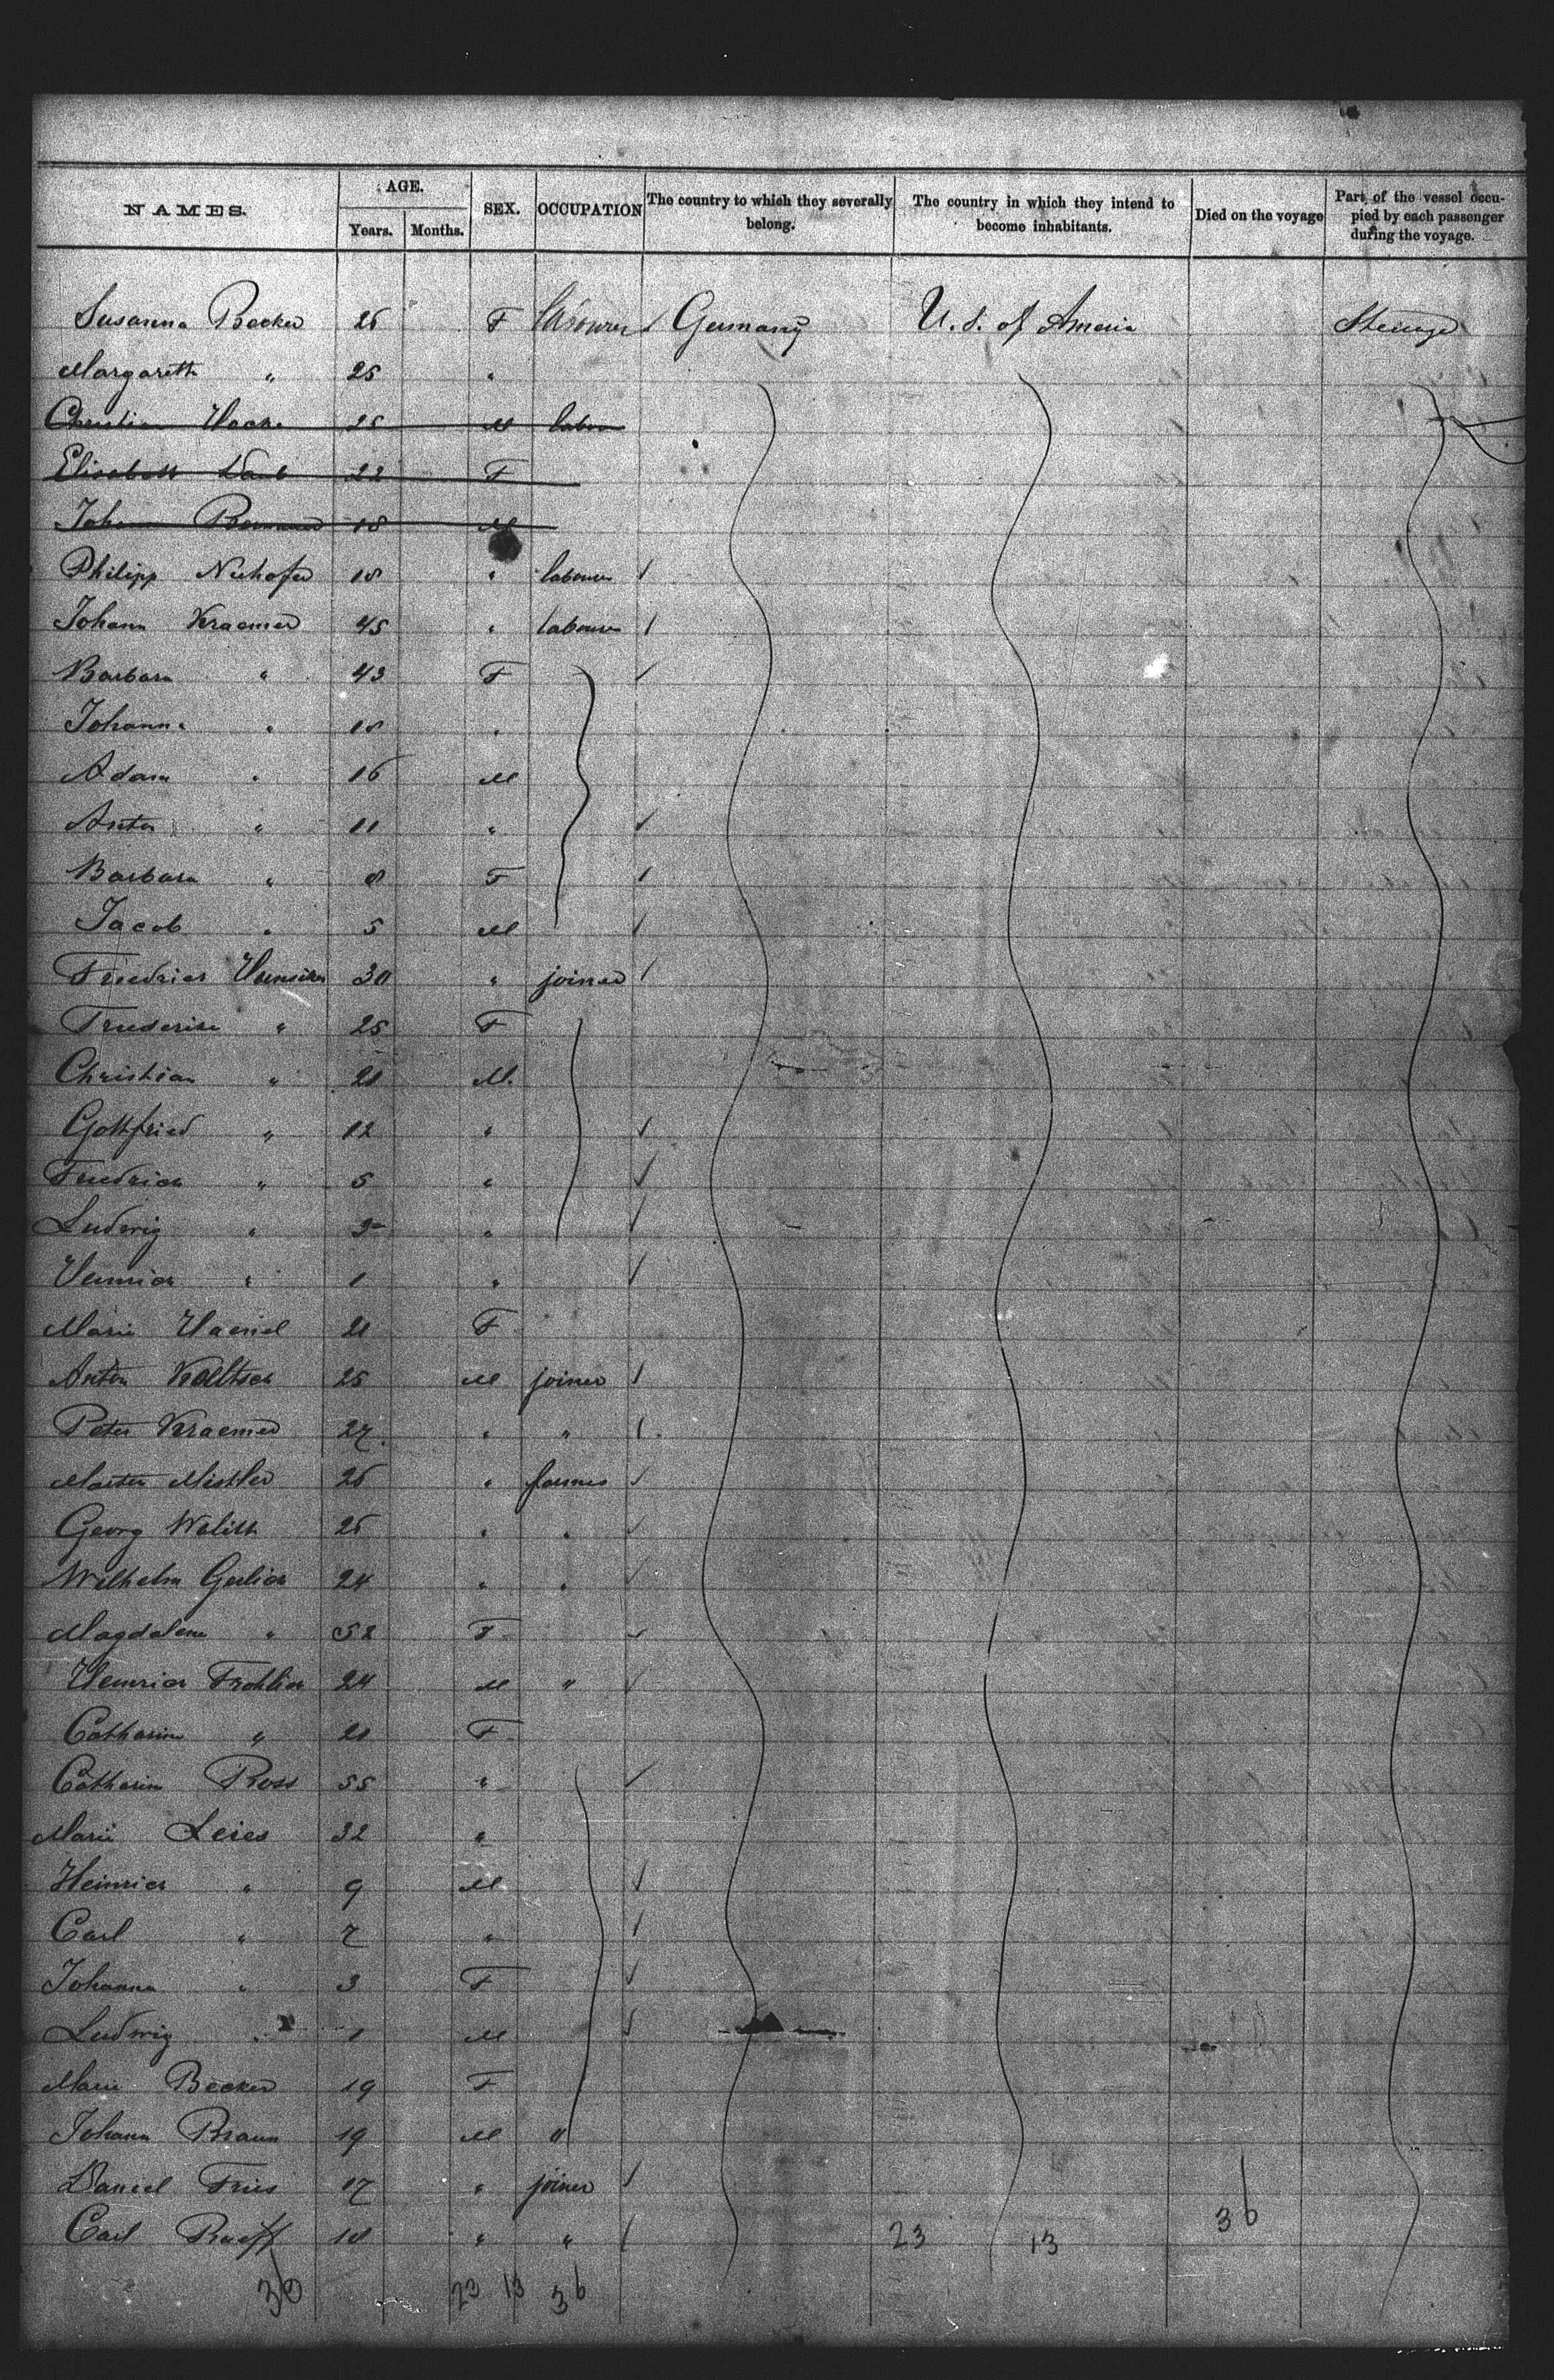 NAMES. AGE. SEX. OCCUPATION The country to which they severally belong. The country in which they intend to become inhabitants. Died on the voyage Part of the vessel occupied by each passenger during the voyage.
Years. Months.
Susanna Becker 26 F Germany U. S. of America Steerage
Margareth " 25 "
Christian 25 M labour
Elisabeth 22 F
Johann 18 M
Philipp Neuhofer 18 " labourer
Johann Kraemer 45 " labourer
Barbara " 43 F
Johanna " 18 "
Adam " 16 M
Anton " 11 "
Barbara " 8 F
Jacob " 5 M
Friedrich 30 " joiner
Friederike " 25 F
Christian " 21 M.
Gottfried " 12 "
Friedrich " 5 "
Ludwig " "
Heinrich " 1 "
Marie Haenel 21 F
Anton 25 M joiner
Peter Kraemer 27 " "
Martin Mistler 26 " farmer
Georg 26 " "
Wilhelm 24 " "
Magdalena " 52 F
Heinrich Frohlich 24 M "
Catharina " 21 F
Catharina Ross 55 "
Marie Leies 32 "
Heinrich " 9 M
Carl " 7 "
Johanna " 3 F
Ludwig " 1 M
Marie Becker 19 F
Johann Braun 19 M "
Daniel Fries 17 " joiner
Carl 18 " " 23 13 36
36 23 13 36